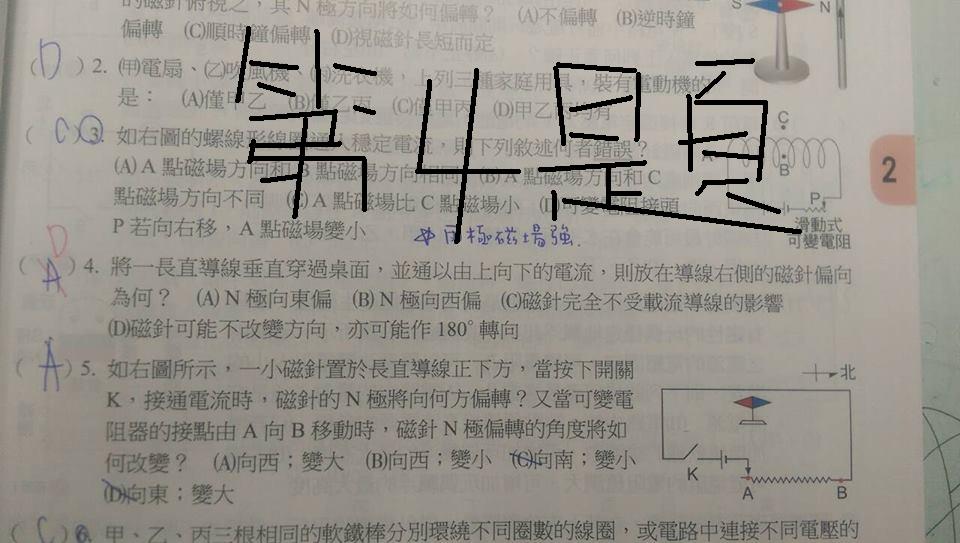 的磁針俯視之，其N極方向將如何偏轉？ (A)不偏轉 (B)逆時鐘
偏轉 (C)順時鐘偏轉 (D)視磁針長短而定
S N
(D) 2. (甲)電扇、(乙)吹風機、(丙)洗衣機，上列三種家庭用具，裝有電動機的
是： (A)僅甲乙 (B)僅乙丙 (C)僅甲丙 (D)甲乙丙均有
第4題
(C) 3. 如右圖的螺線形線圈通入穩定電流，則下列敘述何者錯誤？
(A) A 點磁場方向和 B 點磁場方向相同 (B) A 點磁場方向和 C
點磁場方向不同 (C) A 點磁場比 C 點磁場小 (D)可變電阻接頭
P 若向右移，A 點磁場變小
C
A
B
P
滑動式
可變電阻
2
極磁場強.
D
( A ) 4. 將一長直導線垂直穿過桌面，並通以由上向下的電流，則放在導線右側的磁針偏向
為何？ (A) N 極向東偏 (B) N 極向西偏 (C)磁針完全不受載流導線的影響
(D)磁針可能不改變方向，亦可能作 180° 轉向
( A ) 5. 如右圖所示，一小磁針置於長直導線正下方，當按下開關
K，接通電流時，磁針的 N 極將向何方偏轉？又當可變電
阻器的接點由 A 向 B 移動時，磁針 N 極偏轉的角度將如
何改變？ (A)向西；變大 (B)向西；變小 (C)向南；變小
(D)向東；變大
北
K
A B
(C) 6. 甲、乙、丙三根相同的軟鐵棒分別環繞不同圈數的線圈，或電路中連接不同電壓的